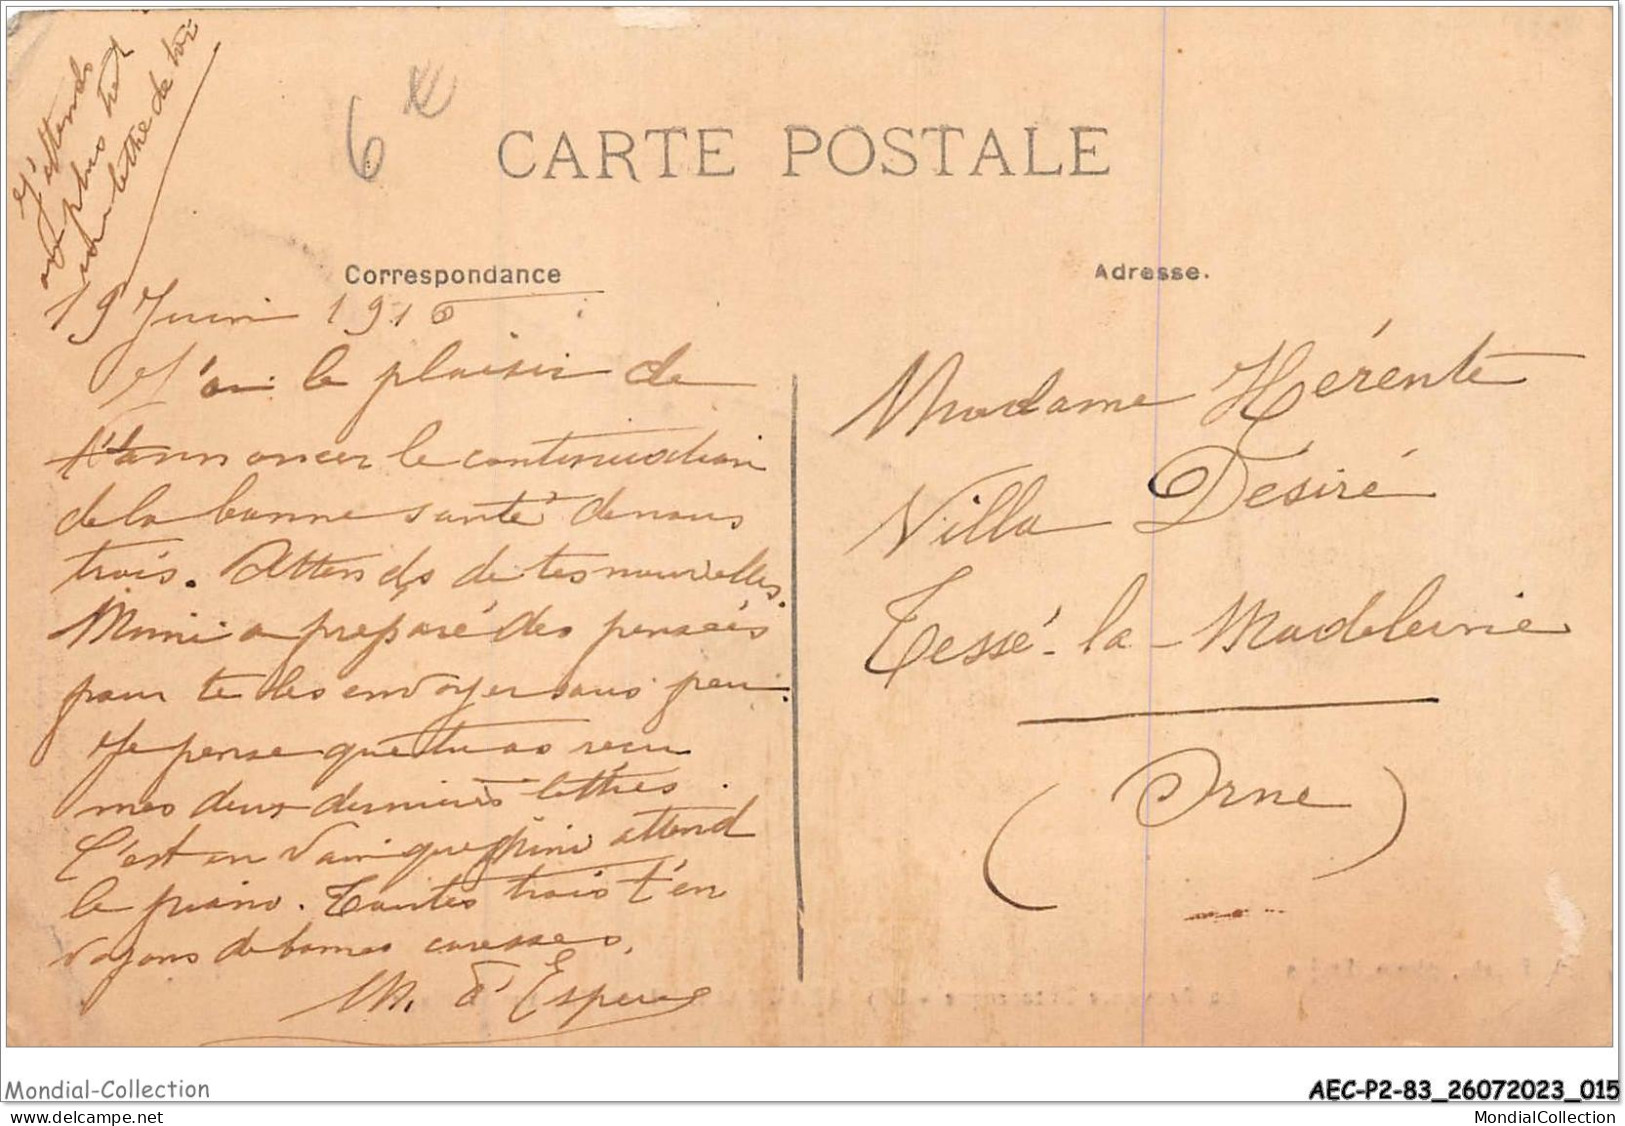 J'attends
au plus tôt
une lettre de toi
6 €
CARTE POSTALE
Correspondance
Adresse.
19 Juin 1910
J'ai le plaisir de
t'annoncer la continuation
de la bonne santé de nous
trois. Attends de tes nouvelles.
Mimi a préparé des pensées
pour te les envoyer sous peu.
Je pense que tu as reçu
mes deux dernières lettres.
C'est en vain que attend
le piano. Toutes trois t'en
voyons de bonnes caresses.
M. d'
Madame Hérente
Villa Désiré
Tessé-la-Madeleine
(Orne)
Mondial-Collection
AEC-P2-83_26072023_015
delcampe.net
MondialCollection